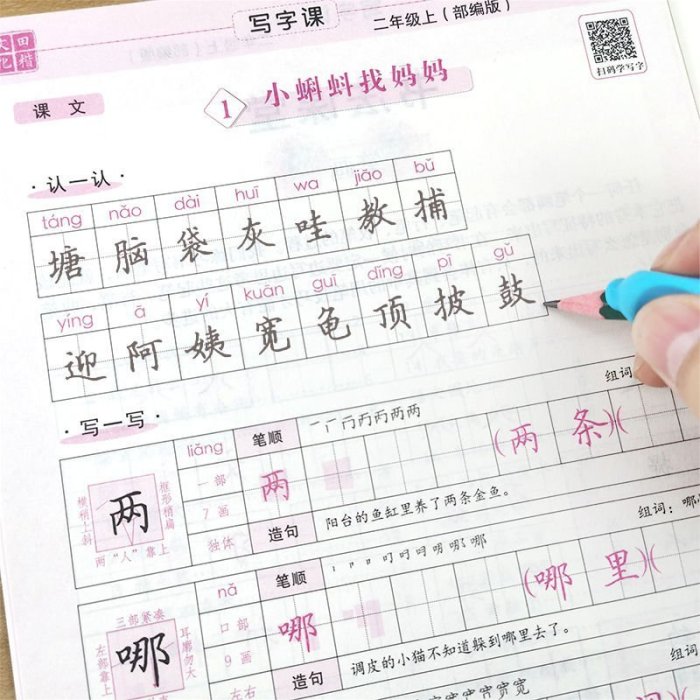 写字课
二年级上（部编版）
田楷
扫码学写字
课 文
1 小蝌蚪找妈妈
·认一认·
táng nǎo dài huī wa jiāo bǔ
塘 脑 袋 灰 哇 教 捕
yíng ā yí kuān guī dǐng pī gǔ
迎 阿 姨 宽 龟 顶 披 鼓
·写一写·
组词
liǎng 笔顺
两 (两 条)(
一部
7画
独体
造句 阳台的鱼缸里养了两条金鱼。
框形稍扁
横稍上斜
两
两“人”靠上
组词：哪
nǎ 笔顺
哪 (哪 里)(
口部
9画
左右
造句 调皮的小猫不知道躲到哪里去了。
三部紧凑
左部靠上
耳廓勿大
哪
宽宽宽宽宽